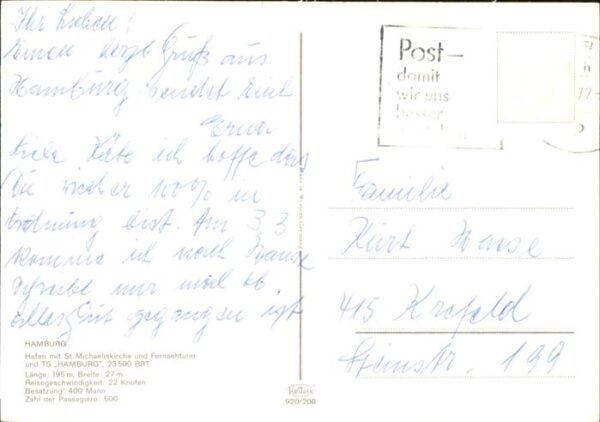 Ihr Lieben!
Einen herzl Gruß aus
Hamburg sendet Euch
Erna
Liebe Käte ich hoffe das
Du wieder 100% in
Ordnung bist. Am 3,3
komme ich nach Hause
schreibe nur mal ob
alles gut gegangen ist
HAMBURG
Hafen mit St. Michaeliskirche und Fernsehturm
und TS „HAMBURG", 23 500 BRT
Länge: 195 m, Breite: 27 m
Reisegeschwindigkeit: 22 Knoten
Besatzung: 400 Mann
Zahl der Passagiere: 600
Made in Western Germany
KRÜGER
920/208
Post-
damit
wir uns
besser
77-
Familie
Kurt Haase
415 Krefeld
Steinstr. 199